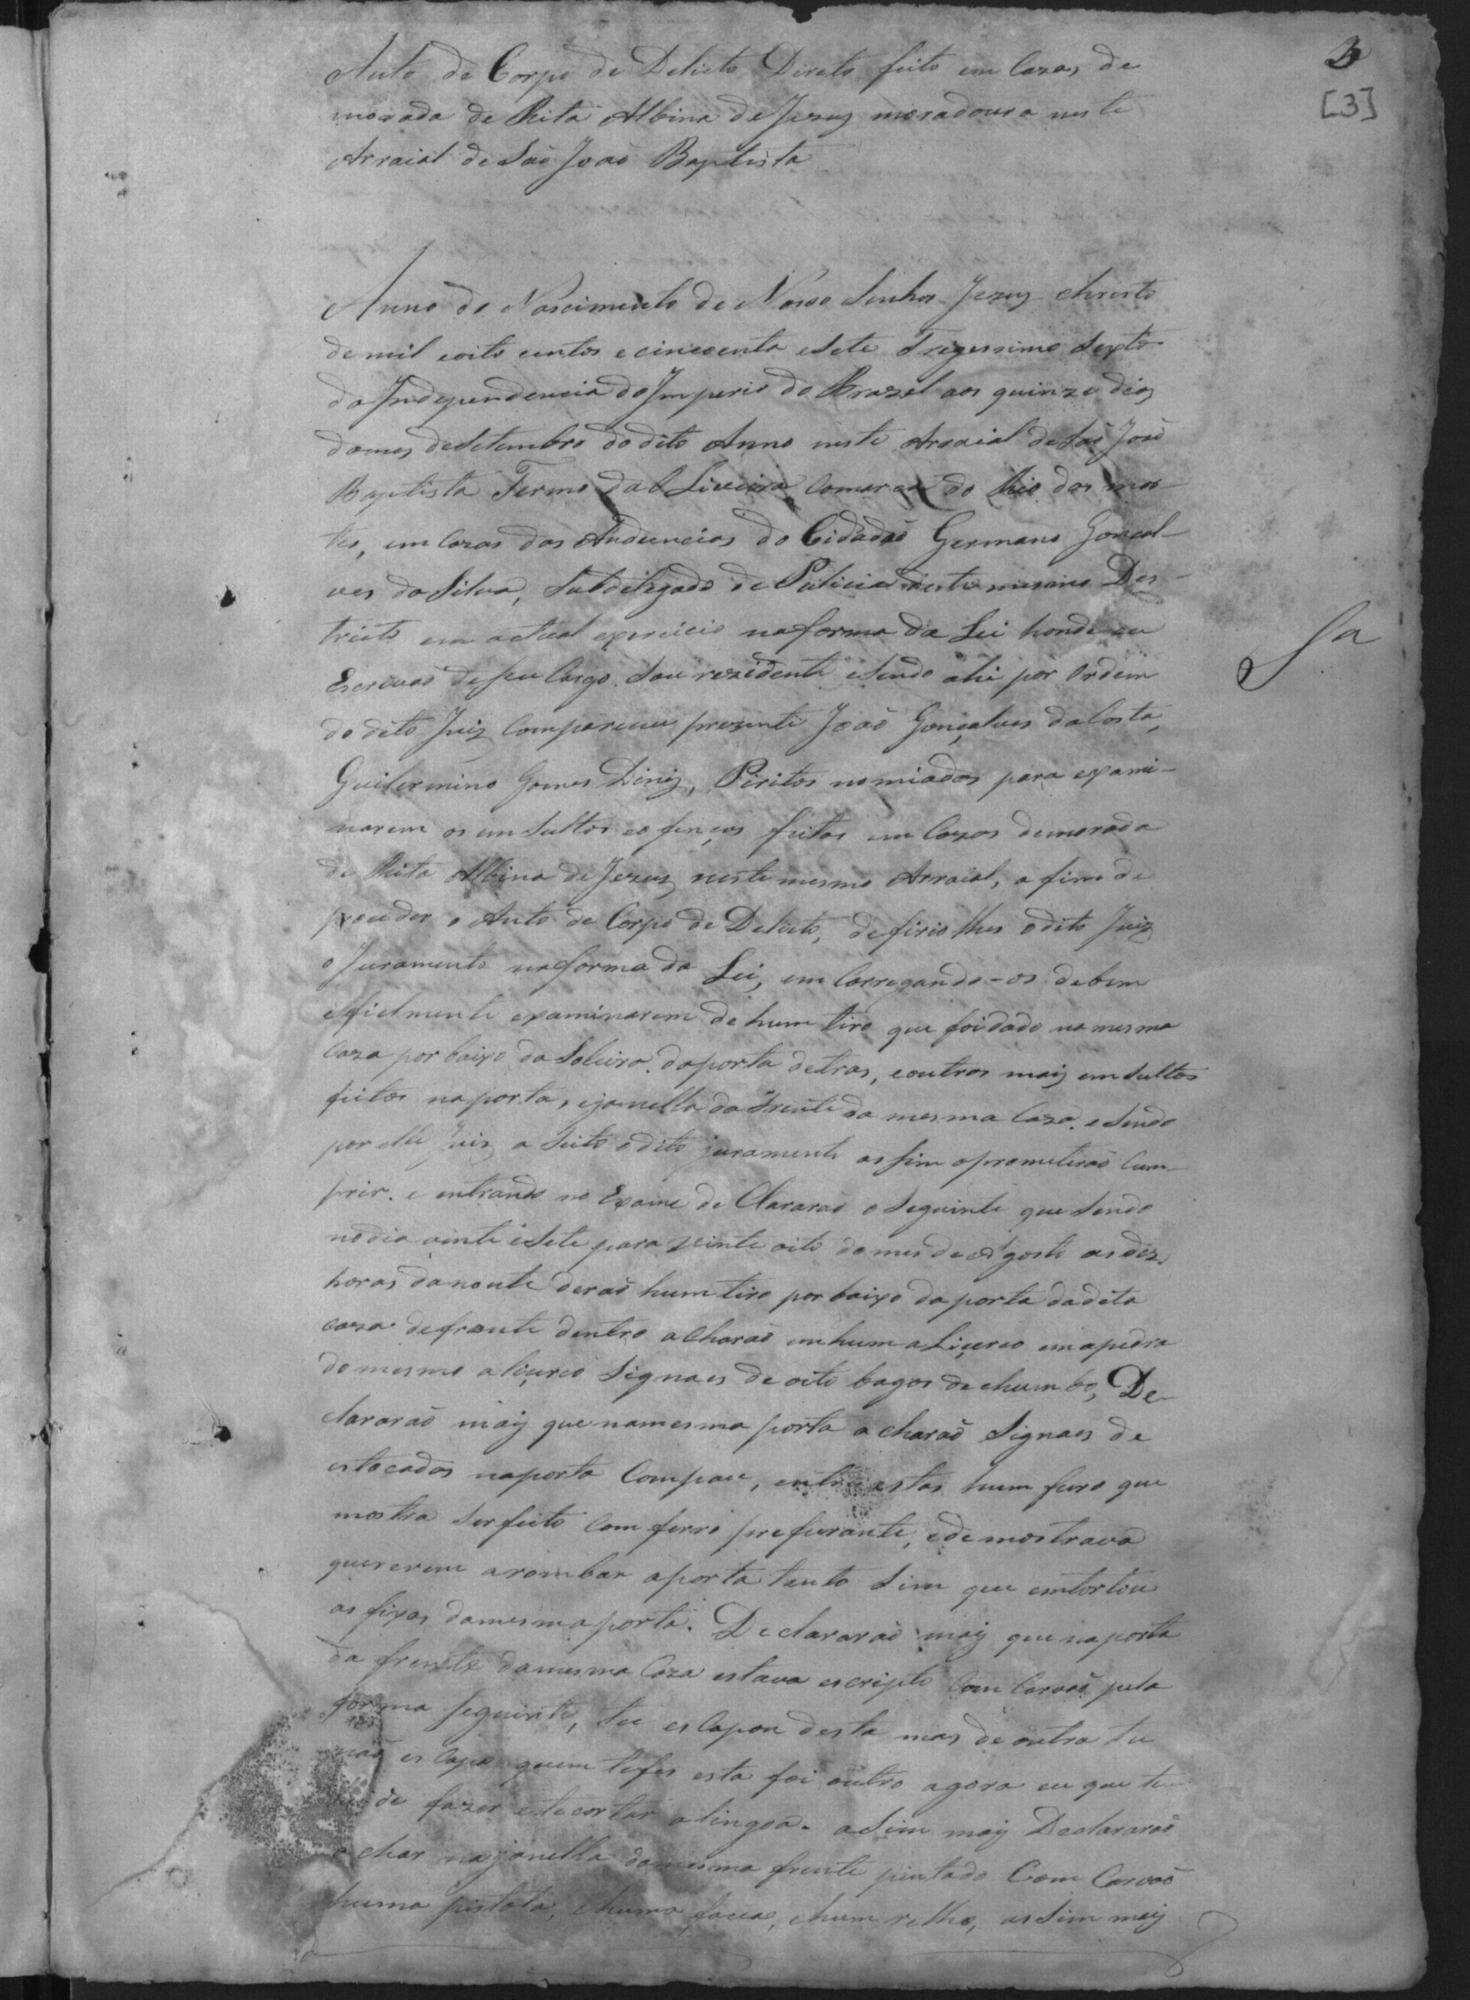 3
[3]
Auto de Corpo de Delicto Direto feito em Cazas de
morada de Rita Albina de Jezus moradoura neste
Arraial de Saõ Joaõ Baptista
Anno do Nascimento de Nosso Senhor Jezus Christo
de mil eoito centos ecincoenta eSete Tregessimo Septo
da Independencia do Imperio do Brazel aos quinze dias
domes deSetembro do dito Anno neste Arraial de Saõ Joaõ
Baptista Termo da Oliveira Comarca do Rio das mor-
tes, em Cazas das Audiencias do Cidadaõ Germano Goncal-
ves da Silva, Subdelegado de Policia deste mesmo Des-
tricto em actual exercicio naforma da Lei honde eu
Escrivaõ de seu Cargo Sou rezidente eSendo ahi por Ordem
do dito Juiz Compareceu prezente Joaõ Gonçalves daCosta,
Guilermino Gomes Diniz, Piritos nomiados para exami-
narem os emSultos eofenças feitas em Cazas demorada
de Rita Albina de Jezus neste mesmo Arraial, a fim de
proceder o Auto de Corpo de Delicto, defirio lhes odito Juiz
o Juramento naforma da Lei, em Carregando-os debem
efielmente examinarem de hum tiro que foidado na mesma
Caza por baixo da Soleira daporta detras, eoutros mais emSultos
feitos naporta, ejanella da frente da mesma Caza. eSendo
por elle Juiz a Seito odito juramento assim oprometeraõ Cum-
prir. e entrando no Exame de Clararaõ o Seguinte que Sendo
nodia vinte eSete para vinte oito do mes de Agosto as dez
horas danoute deraõ hum tiro por baixo da porta dadita
caza defronte dentro acharaõ em hum aLicerce em apedra
do mesmo alicerce Signaes de oito bagos de chumbo, De-
clararaõ mais que namesma porta a charaõ Signaes de
estocadas naporta Compau, entre estas hum furo que
mostra serfeito Com ferro prefurante, edemostrava
quererem arombar aporta tanto Sim que entortou
as fixas damesma porta. Declararaõ mais que naporta
da frente damesma Caza estava escripto Com Carvaõ pela
forma Seguinte, tu esCapou desta mas de outra tu
naõ esCapa quem tefes esta foi outro agora eu que te
hei de fazer etecortar alingoa. aSim mais Declararaõ
achar najanella damesma frente pintado Com Carvaõ
huma pistola, ehuma faca, ehum relho, asSim mais